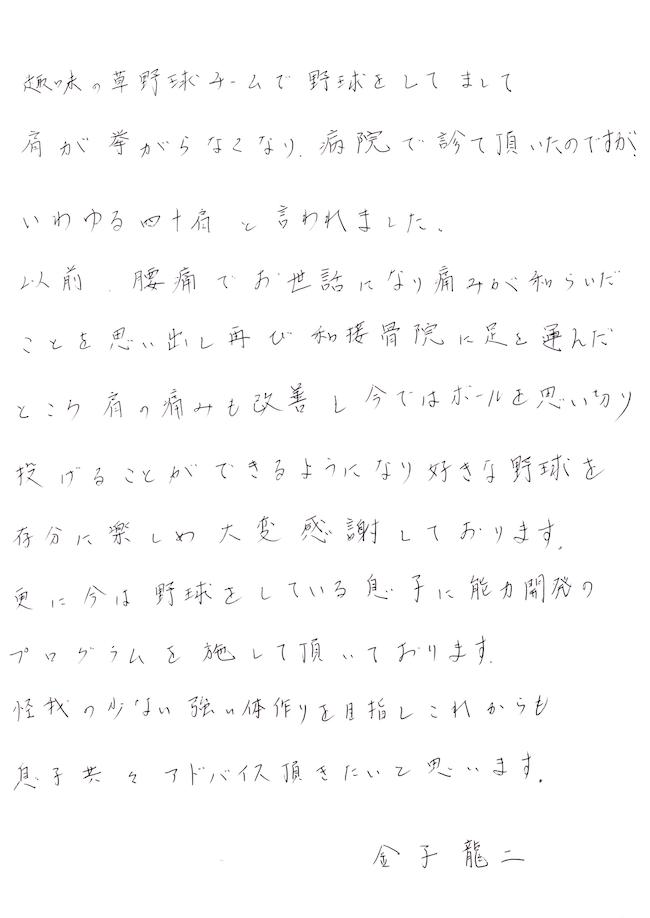 趣味の草野球チームで野球をしてまして
肩が挙がらなくなり、病院で診て頂いたのですが、
いわゆる四十肩と言われました。
以前、腰痛でお世話になり痛みが和らいだ
ことを思い出し再び和接骨院に足を運んだ
ところ肩の痛みも改善し今ではボールを思い切り
投げることができるようになり好きな野球を
存分に楽しめ大変感謝しております。
更に今は野球をしている息子に能力開発の
プログラムを施して頂いております。
怪我の少ない強い体作りを目指しこれからも
息子共々アドバイス頂きたいと思います。
金子龍二